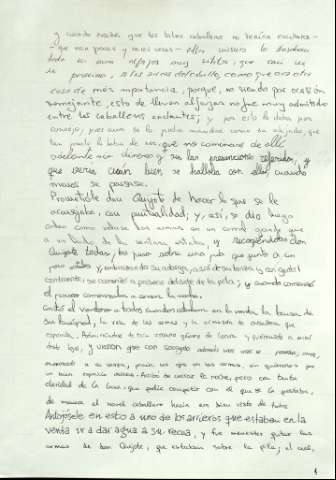 y cuando no
que eran pocas y raras veces- ellos mismos lo llevaban
todo en unas alforjas muy sutiles, que casi no se
a las ancas del caballo, como que era otra
cosa de más importancia, porque, no siendo por ocasión
semejante, esto de llevar alforjas no fue muy admitido
entre los caballeros andantes; y por esto le daba por
consejo,
que no caminase de allí
adelante sin dineros y sin las prevenciones referidas, y
que vería cuán bien se hallaba con ellas, cuando
menos se pensase.
Prometióle don Quijote de hacer lo que se le
aconsejaba, con puntualidad; y, así, se dio luego
orden como velase las armas en un corral grande que
a un lado de la venta estaba, y recogiéndolas don
Quijote todas, las puso sobre una pila que junto a un
pozo estaba y, embrazando su adarga, asió de su lanza y con gentil
continente se comenzó a pasear delante de la pila; y cuando comenzó
el paseo comenzaba a cerrar la noche.
Contó el ventero a todos cuantos estaban en la venta la locura de
su huésped, la vela de las armas y la armazón de caballería que
esperaba. Admiráronse de tan extraño género de locura y
y vieron que con sosegado ademán unas veces se paseaba; otras,
arrimado a su lanza, ponía los ojos en las armas, sin quitarlos por
un buen espacio dellas. Acabó de cerrar la noche, pero con tanta
claridad de la luna, que podía competir con el que se la prestaba,
de manera el novel caballero hacía era bien visto de todos.
Antojósele en esto a uno de los arrieros que estaban en la
venta ir a dar agua a su recua, y fue menester quitar las
armas de don Quijote, que estaban sobre la pila; el cual,